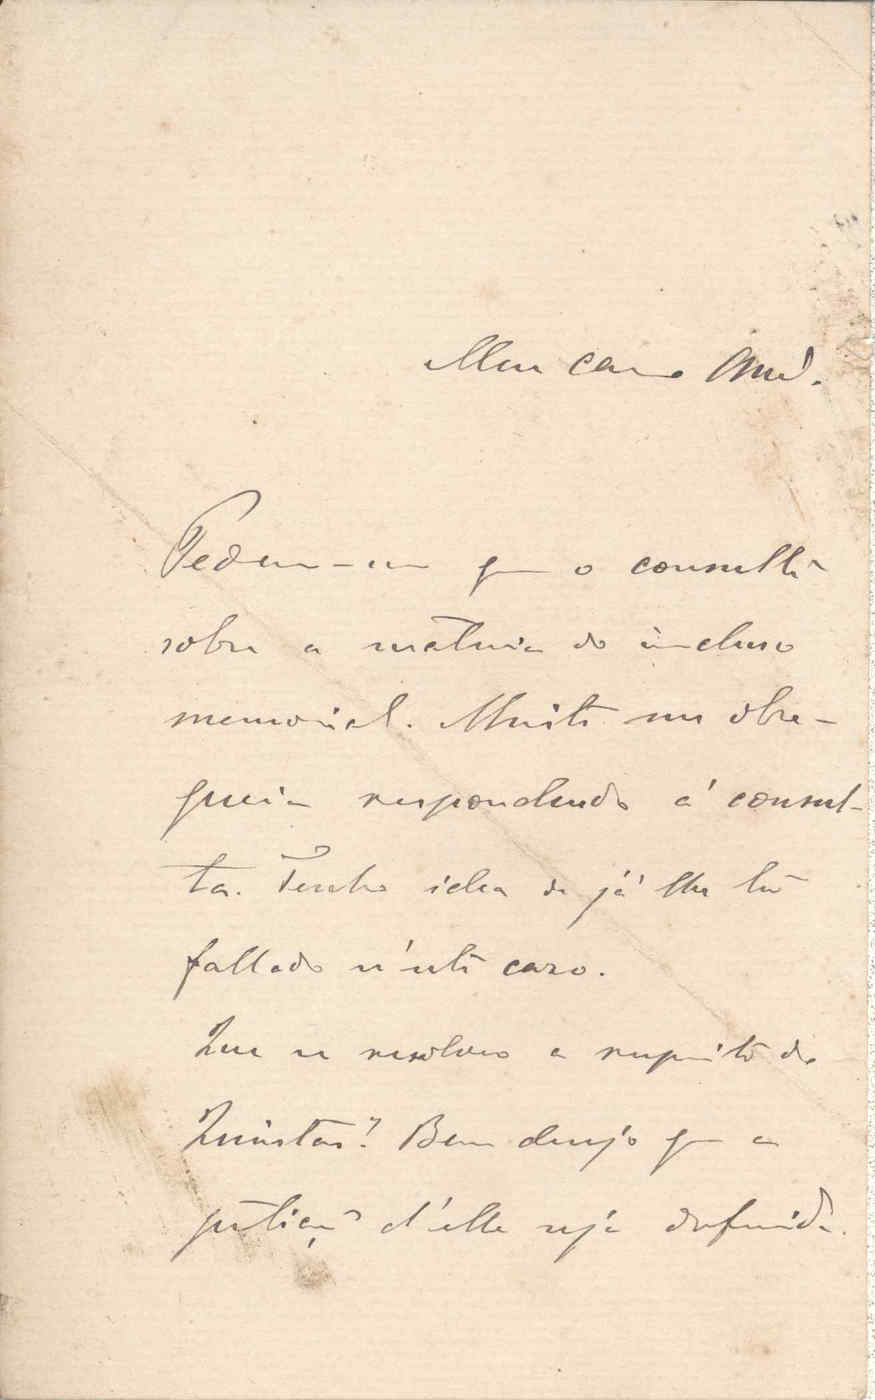 Meu caro Am.º
Pedem-me que o consulte
sobre a materia do incluso
memorial. Muito me obse-
queia respondendo á consul-
ta. Tenho idea de já lhe ter
fallado n'este caso.
Que se resolveo a respeito do
Quintas? Bem desejo que a
petição d'elle seja deferida.